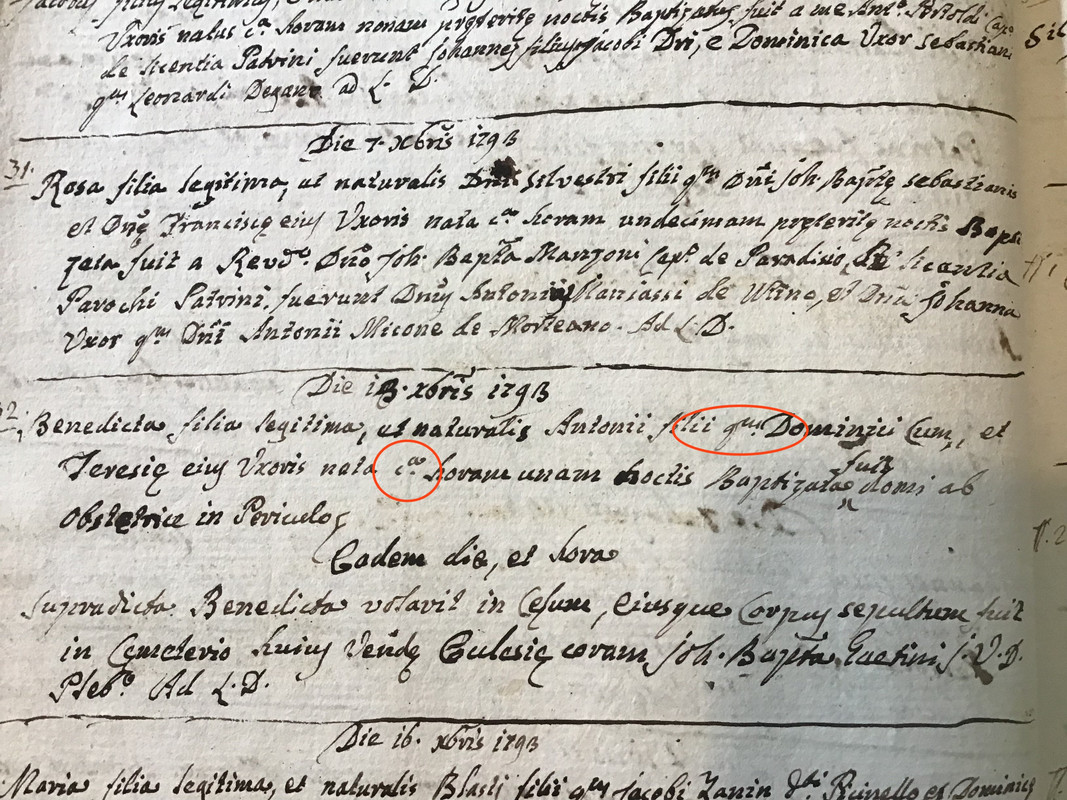 Jacobus filius legitimus,
Uxoris natus c.ª horam nonam preteritę noctis Baptizatus fuit a me Ant.º
de licentia Patrini fuerunt Johannes filius Jacobi Dri, e Dominica Uxor Sebastiani
q.m Leonardi Degano ad L. D.
Die 7. Xbris 1793
31. Rosa filia legitima, et naturalis Dni Silvestri filii q.m Dni Joh. Baptę Sebastianis
et Dnę Franciscę eius Uxoris nata c.ª horam undecimam preteritę noctis Bapti
zata fuit a Rev.do Dno Joh. Bapta Manzoni Cap.º de Paradiso, de licentia
Parochi Patrini fuerunt Dnus Antonius de Utino, et Dna Johanna
Uxor q.m Dni Antonii Micone de Morteano. Ad L. D.
Die 13. Xbris 1793
32. Benedicta filia legitima, et naturalis Antonii filii q.m Dominici Cum, et
Teresię eius Uxoris nata c.ª horam unam noctis Baptizata fuit domi ab
Obstetrice in Periculo
Eadem die, et hora
Supradicta Benedicta volavit in Cęlum, Eiusque Corpus sepultum fuit
in Cęmeterio huius Vendę Eclesię coram Joh. Bapta Gaetini J. V. D.
Pleb.º Ad L. D.
Die 16. Xbris 1793
Maria filia legitima, et naturalis Blasii filii q.m Jacobi Zanin d.ti et Dominicę